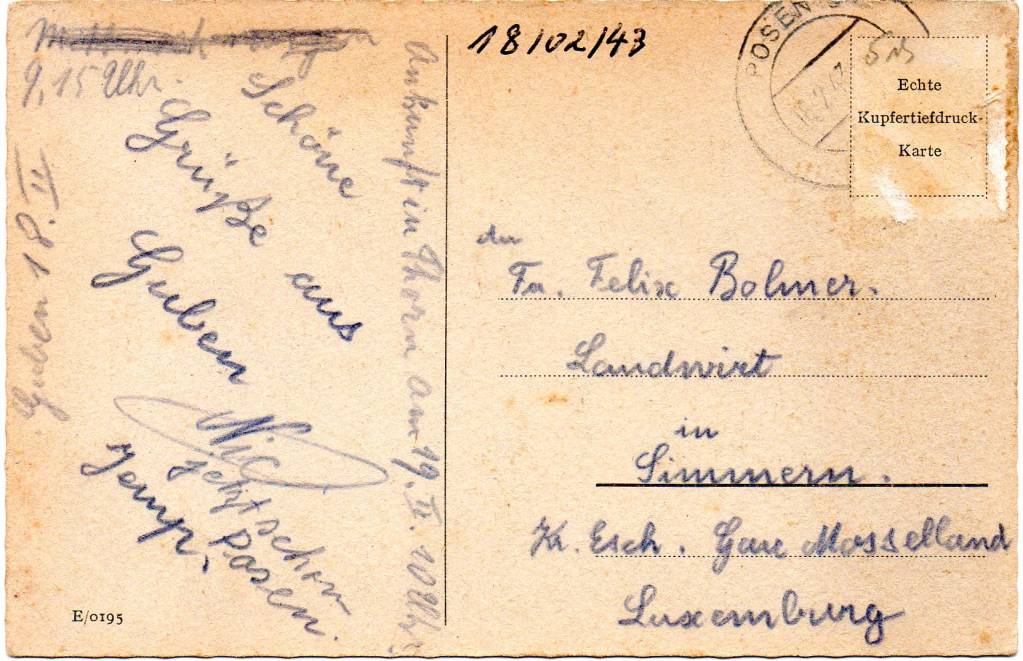 9,15 Uhr.
Guben 18. II
Schöne
Grüße aus
Guben
Nic
Jemp.
jetzt schon
Posen.
Ankunft in Thorn am 19. II. 10 Uhr.
18/02/43
POSEN
Echte
Kupfertiefdruck-
Karte
An
Fa. Felix Bolmer.
Landwirt
in
Simmern.
K. Esch. Gau Mosselland
Luxemburg
E/0195